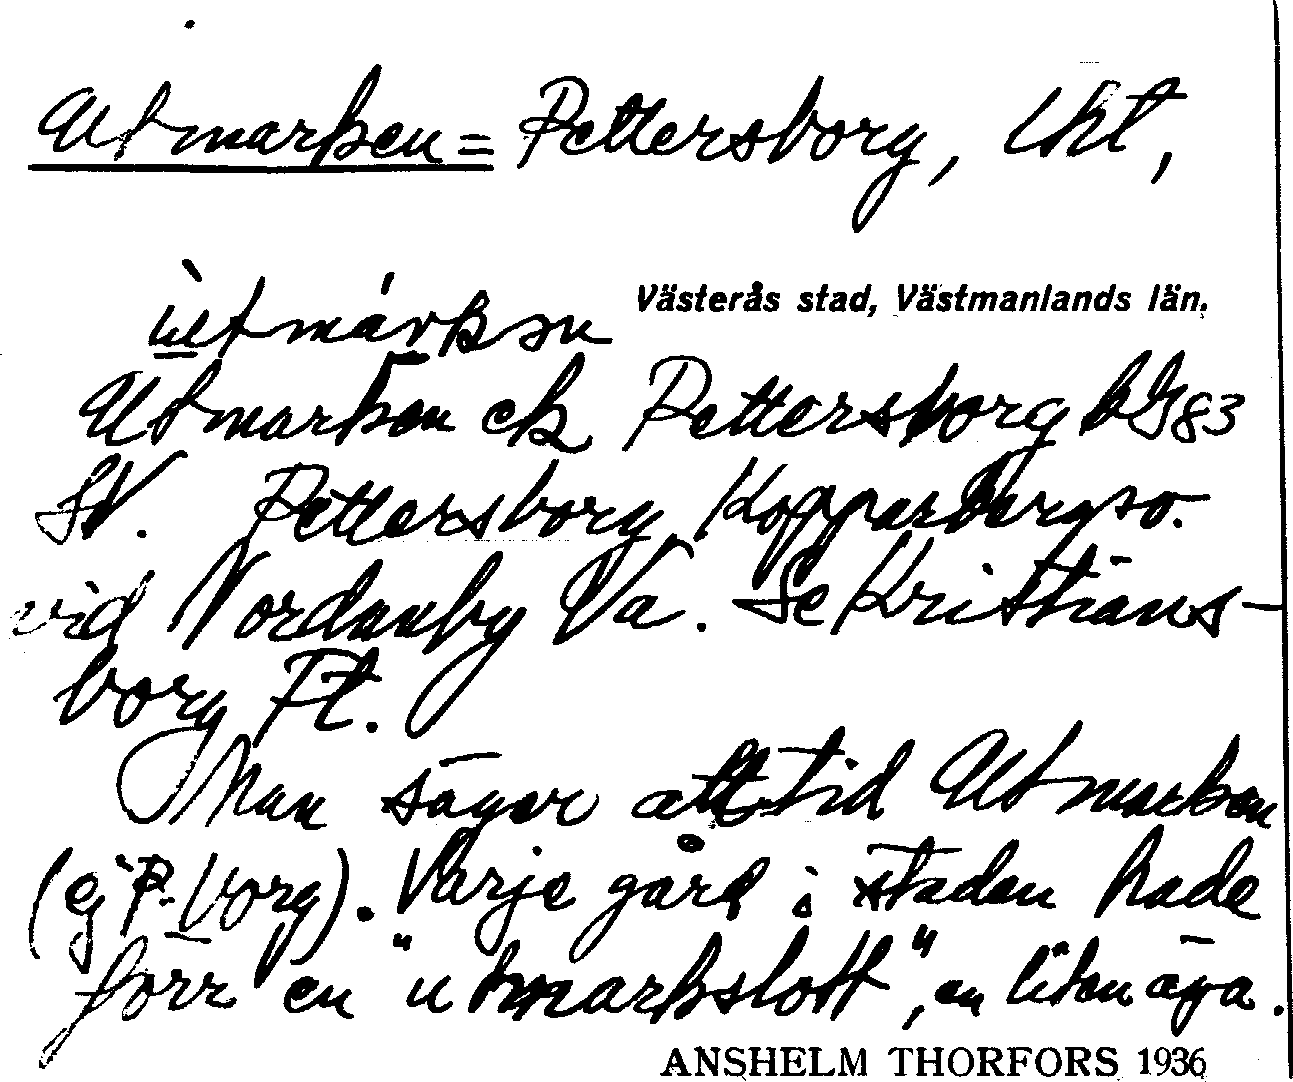 Utmarken = Pettersborg, lht,
Västerås stad, Västmanlands län.
ùtmárkən
Utmarken ek Pettersborg bG83
SV. Pettersborg Kopparbergso.
vid Nordanby Va. Se Kristians-
borg Ft.
Man säger alltid Utmarken
(ej P-borg). Varje gård i staden hade
förr en "utmarkslott", en liten äga.
ANSHELM THORFORS 1936